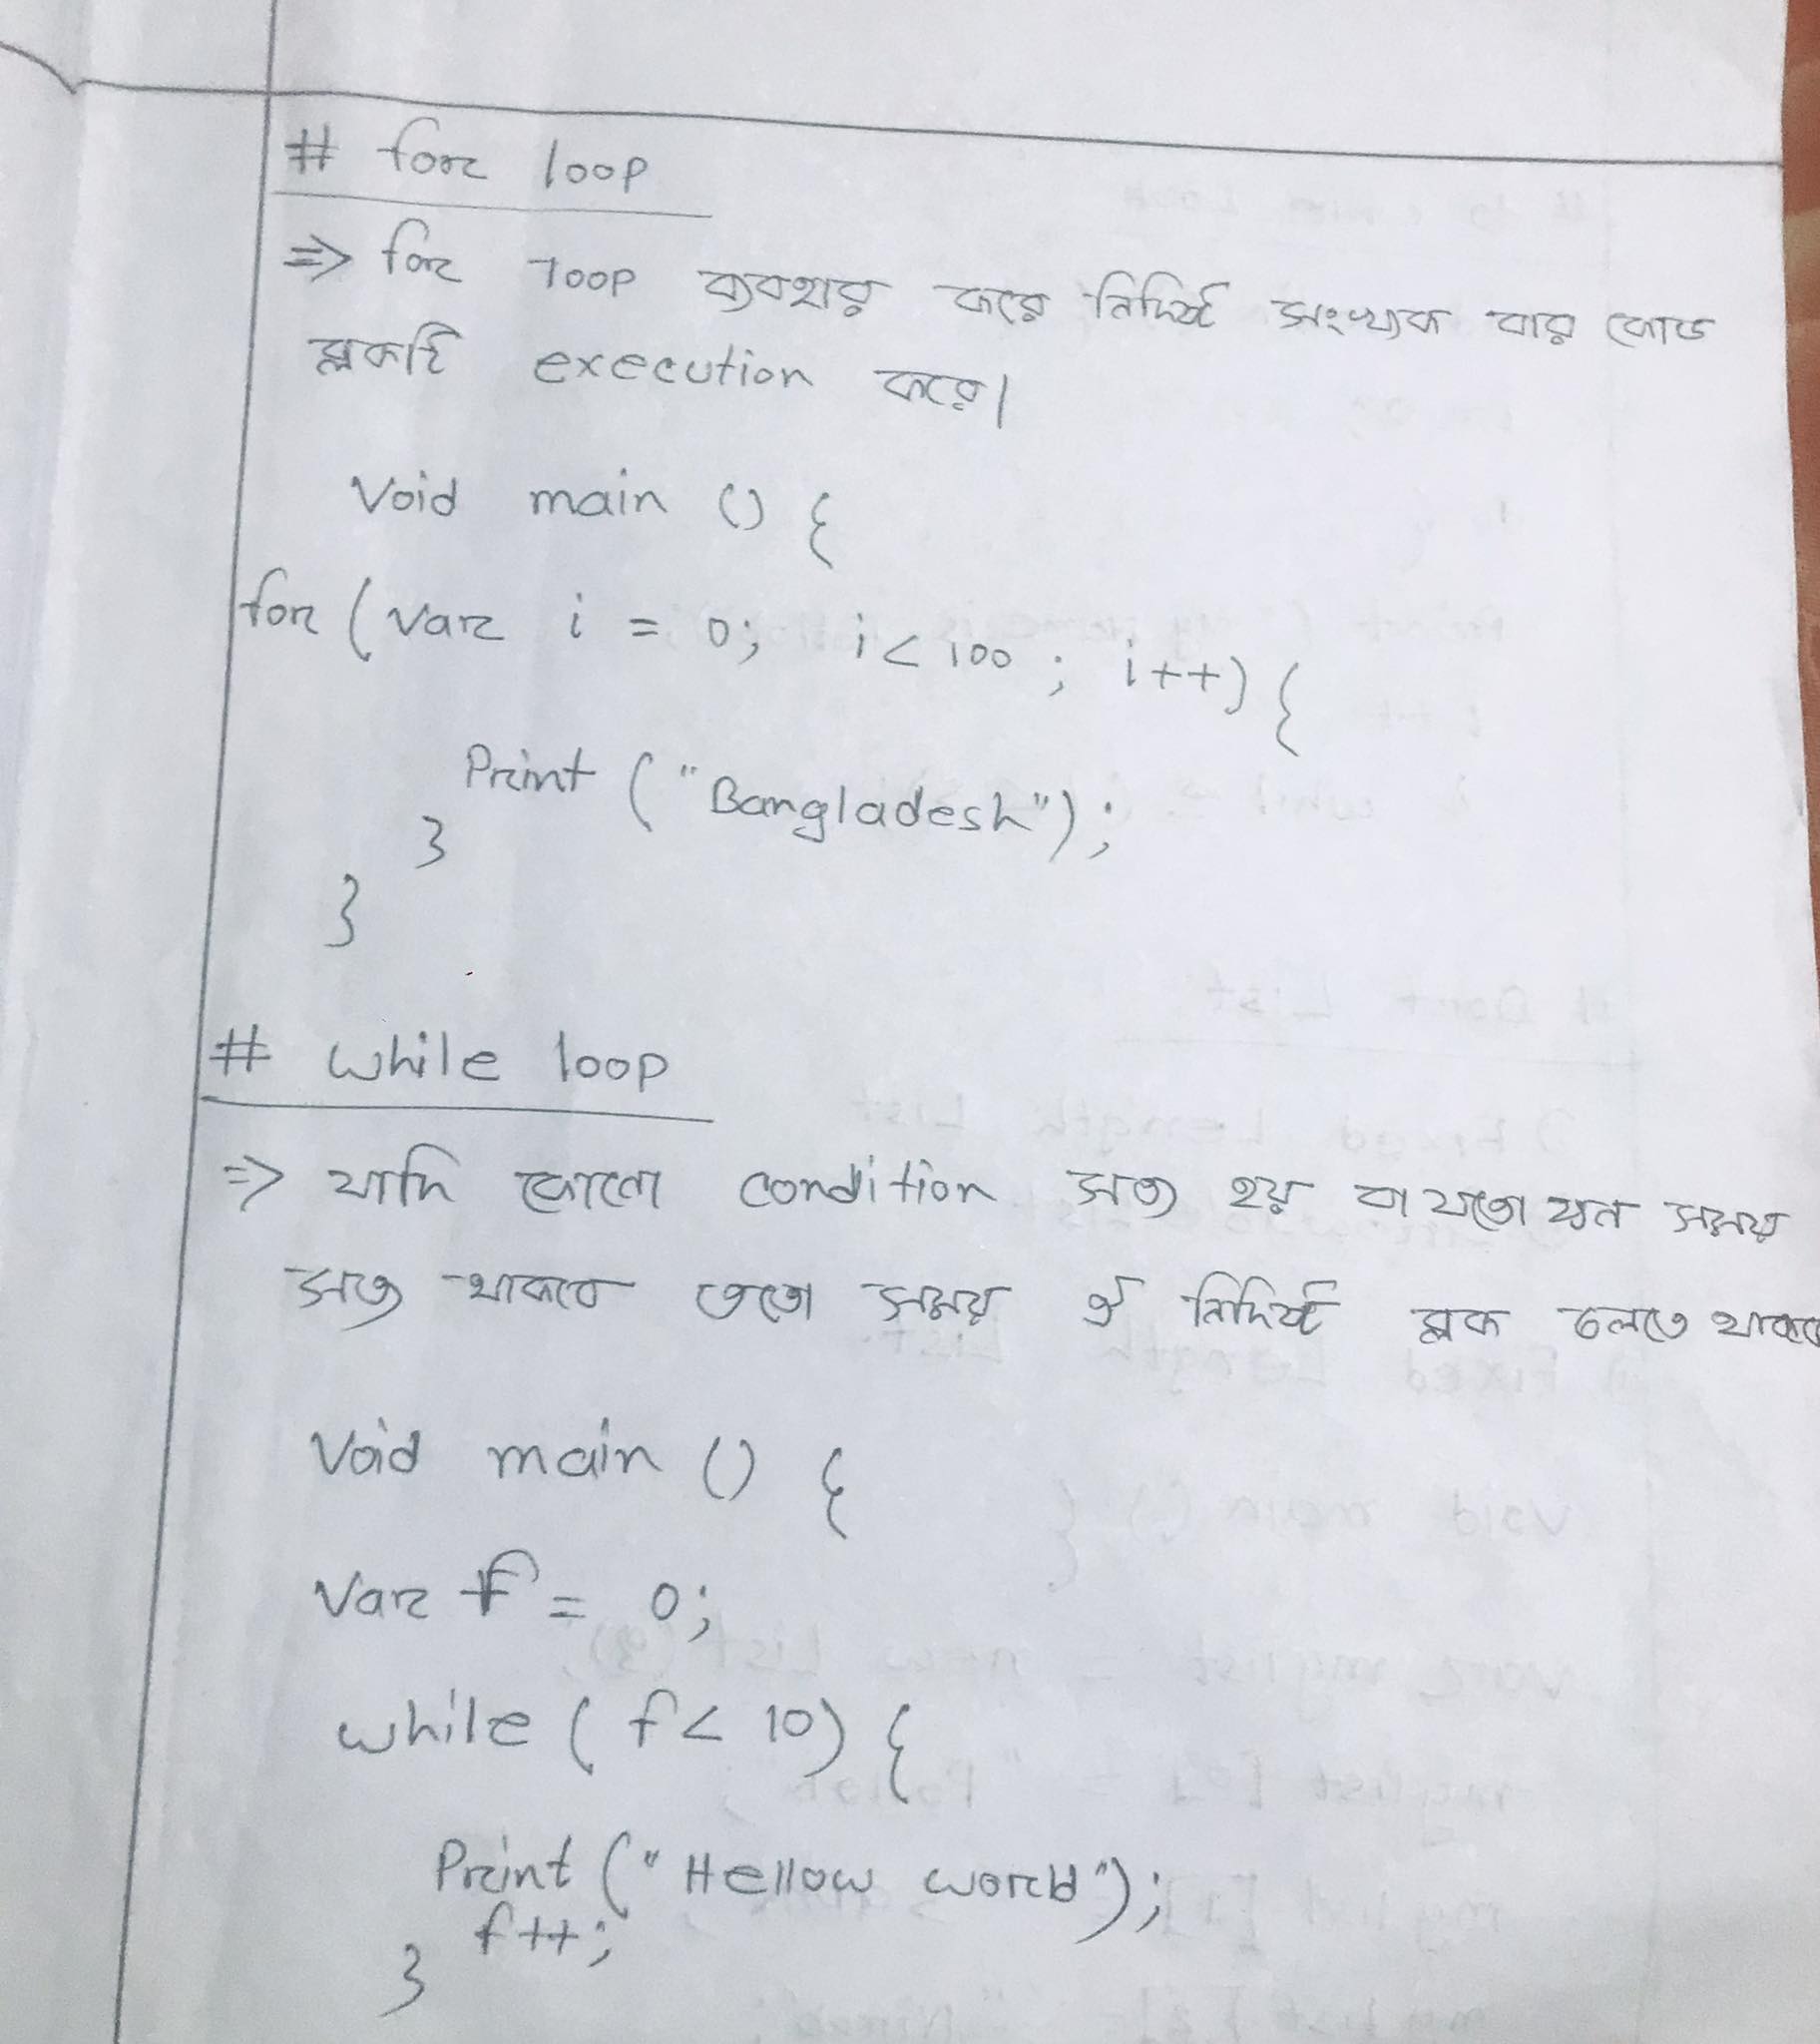 # for loop
=> for loop ব্যবহার করে নির্দিষ্ট সংখ্যক বার কোড
ব্লকটি execution করে।
Void main () {
for (var i = 0; i < 100 ; i++) {
Print ("Bangladesh");
}
}
# while loop
=> যদি কোনো condition সত্য হয় বা যতো খন সময়
সত্য থাকবে ততো সময় ঐ নির্দিষ্ট ব্লক চলতে থাকবে
Void main () {
Var f = 0;
while ( f < 10) {
Print (" Hellow world");
f++;
}